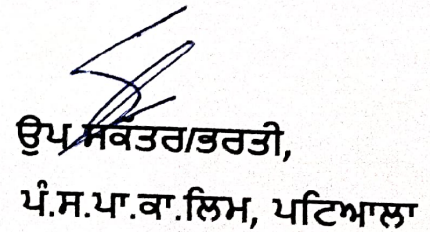 ਉਪ ਸਕੱਤਰ/ਭਰਤੀ,
ਪੰ.ਸ.ਪਾ.ਕਾ.ਲਿਮ, ਪਟਿਆਲਾ